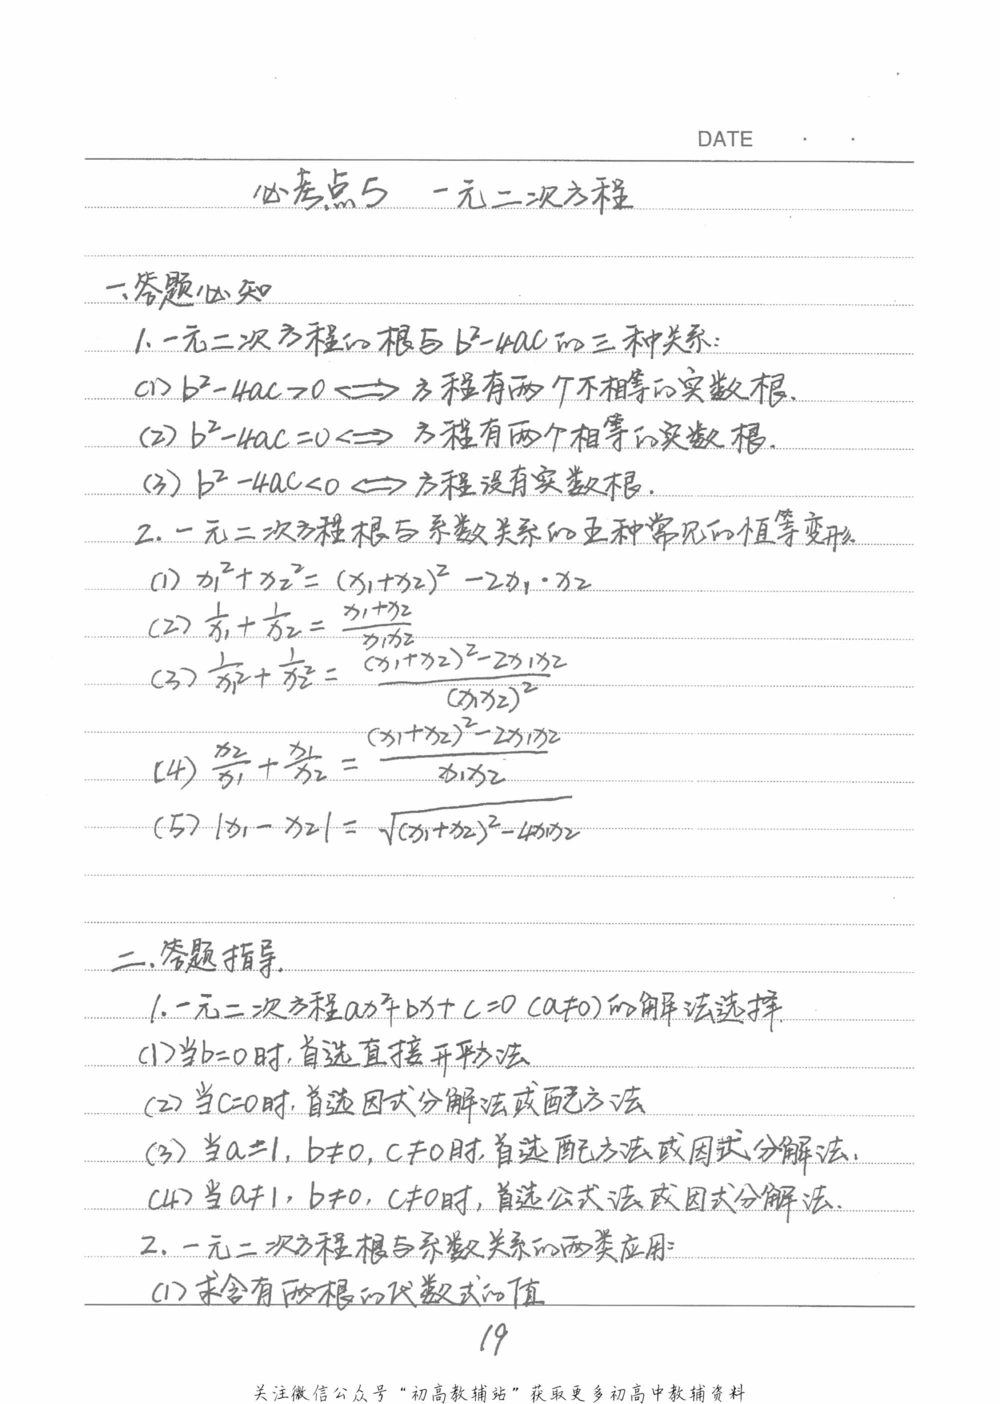 DATE · ·
必考点5 一元二次方程
一、答题必知
1.一元二次方程的根与b²-4ac的三种关系:
(1) b²-4ac>0 <=> 方程有两个不相等的实数根.
(2) b²-4ac=0 <=> 方程有两个相等的实数根.
(3) b²-4ac<0 <=> 方程没有实数根.
2.一元二次方程根与系数关系的五种常见的恒等变形
(1) x₁²+x₂²=(x₁+x₂)²-2x₁·x₂
(2) 1/x₁+1/x₂=(x₁+x₂)/(x₁x₂)
(3) 1/x₁²+1/x₂²=((x₁+x₂)²-2x₁x₂)/(x₁x₂)²
(4) x₂/x₁+x₁/x₂=((x₁+x₂)²-2x₁x₂)/(x₁x₂)
(5) |x₁-x₂|=√((x₁+x₂)²-4x₁x₂)
二、答题指导.
1.一元二次方程ax²+bx+c=0(a≠0)的解法选择
(1)当b=0时,首选直接开平方法
(2)当c=0时,首选因式分解法或配方法
(3)当a=1,b≠0,c≠0时,首选配方法或因式分解法.
(4)当a≠1,b≠0,c≠0时,首选公式法或因式分解法.
2.一元二次方程根与系数关系的两类应用:
(1)求含有两根的代数式的值
19
关注微信公众号“初高教辅站”获取更多初高中教辅资料